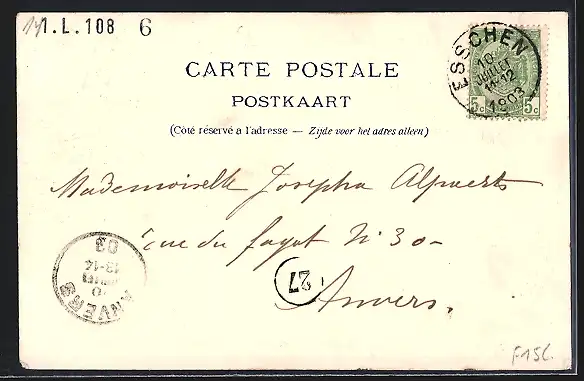 1.L.108 6
ESSCHEN
10
JUILLET
11-12
1903
5c 5c
CARTE POSTALE
POSTKAART
(Côté réservé a l'adresse — Zijde voor het adres alleen)
Mademoiselle Josepha Alpaerts
rue du fagot N: 30-
Anvers.
27
ANVERS
13-14
03
F15C.